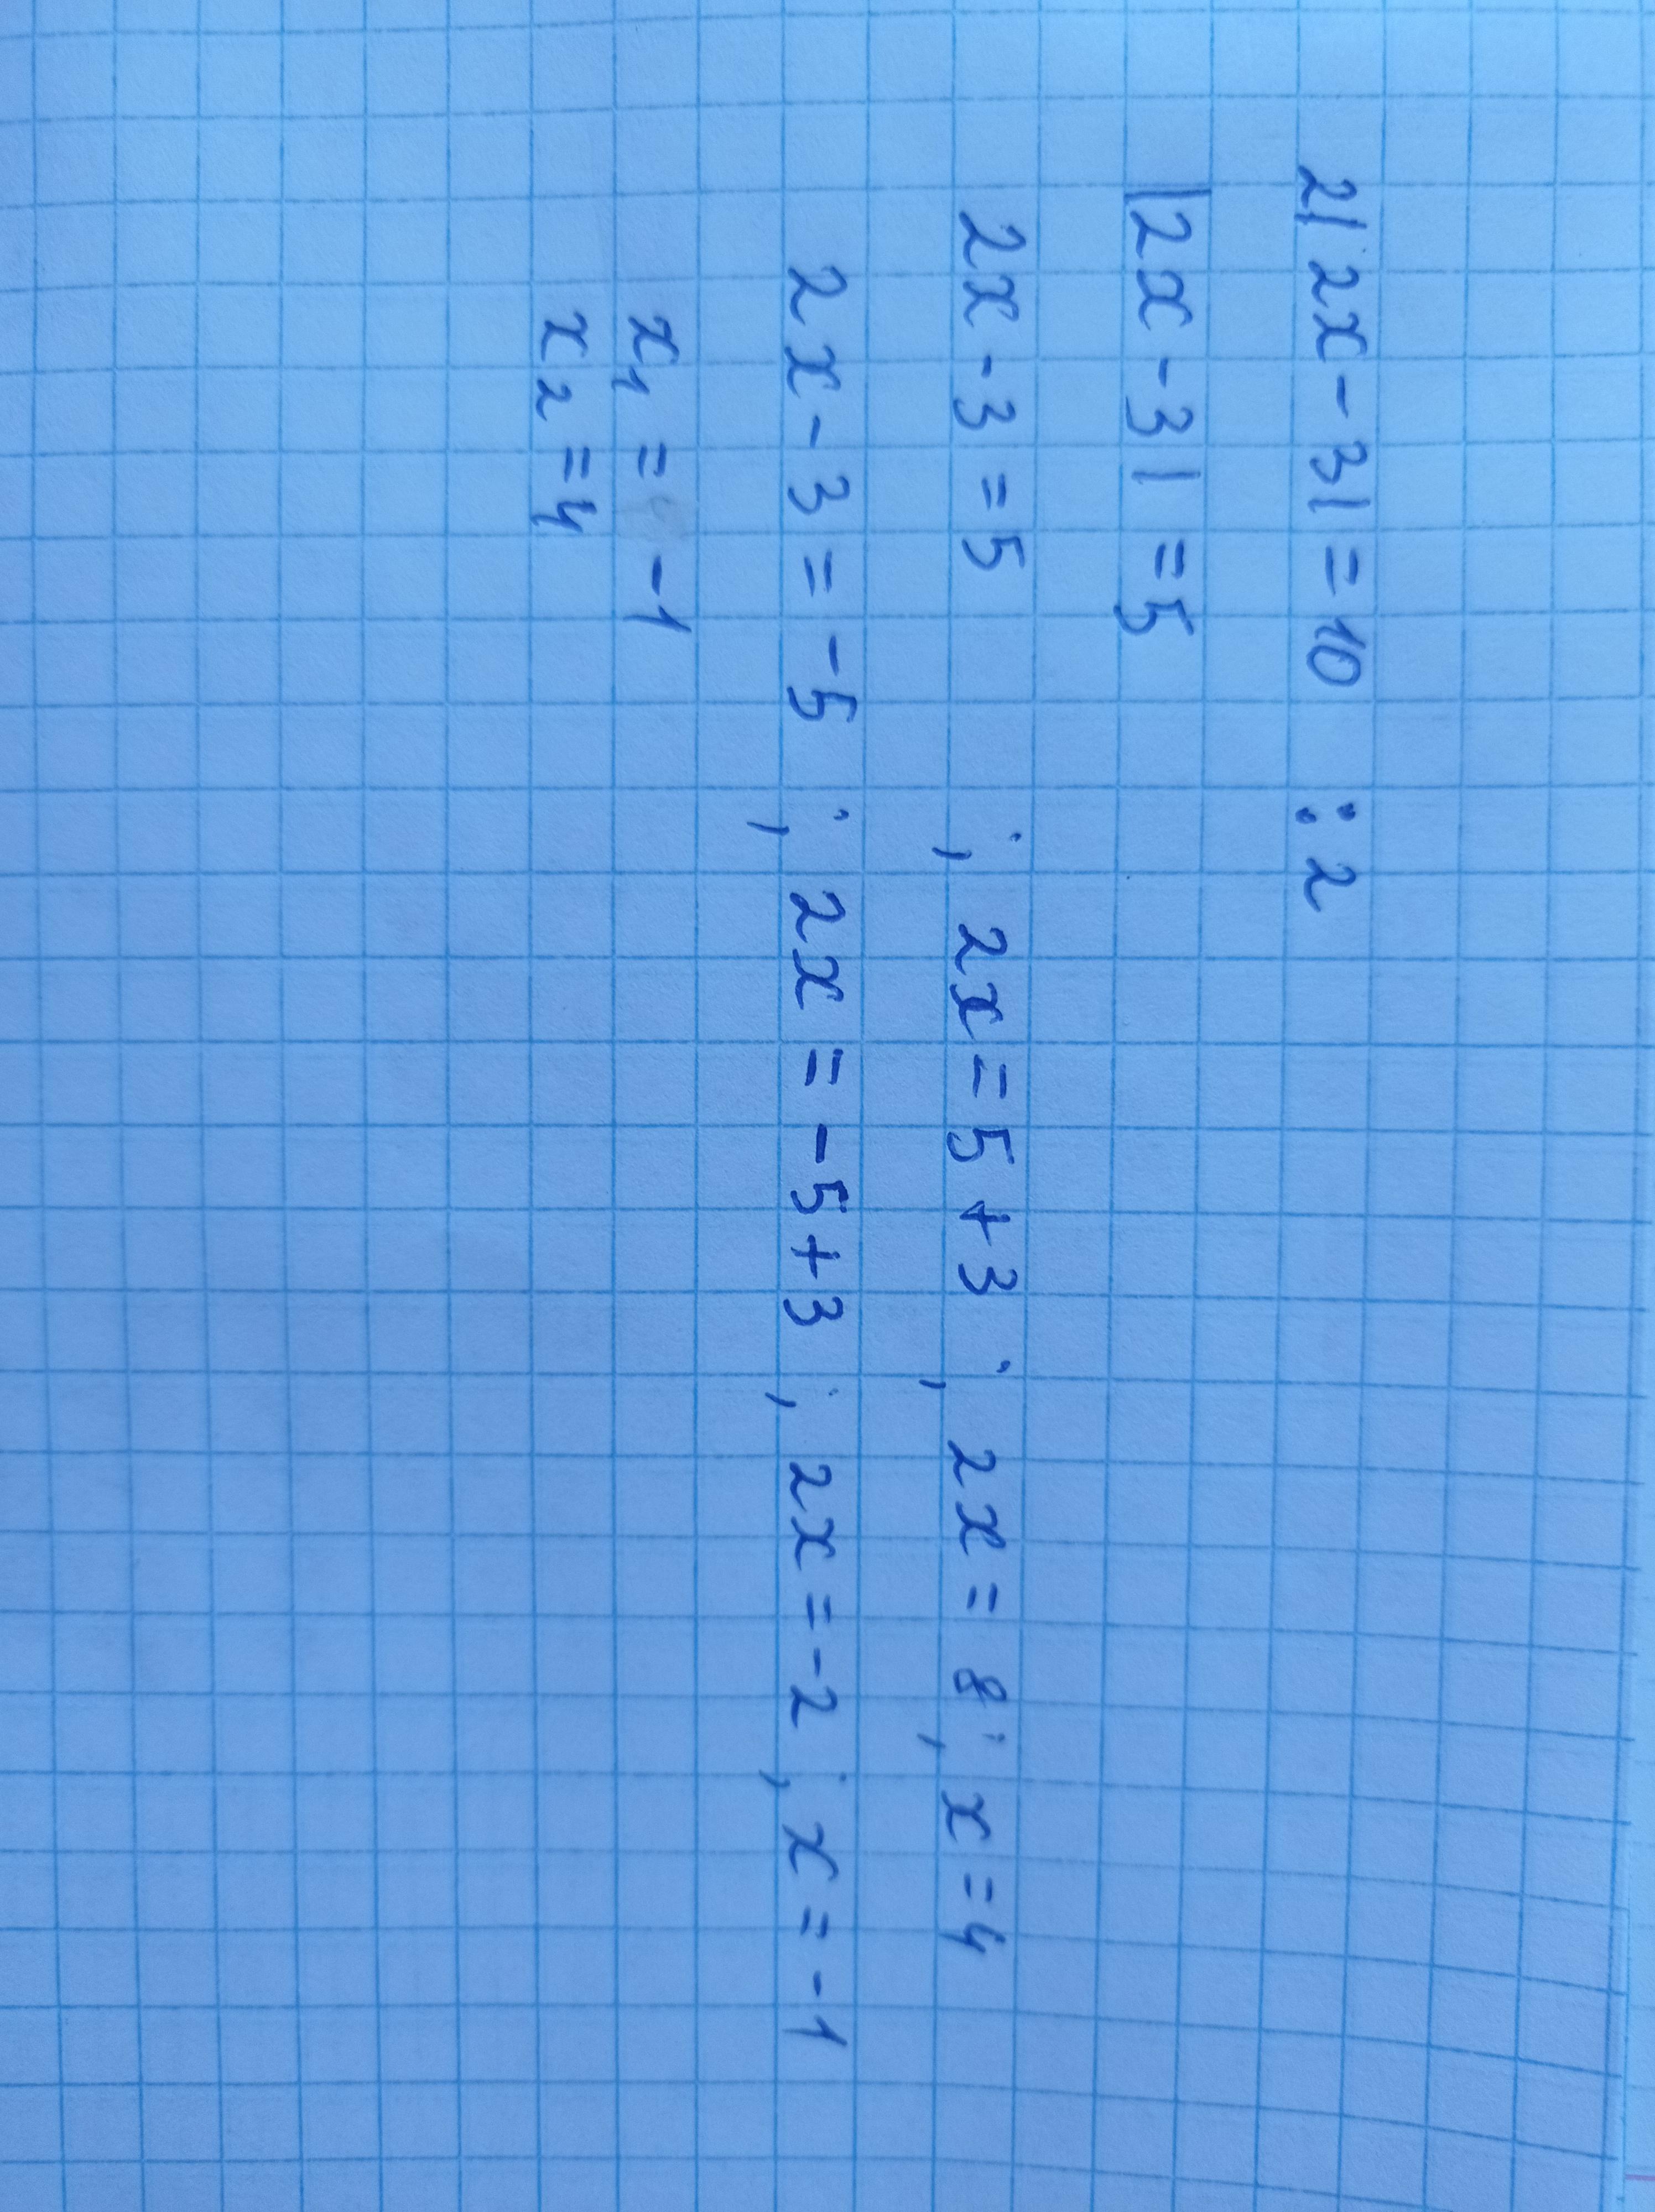 2|2x-3|=10 :2
|2x-3|=5
2x-3=5 ; 2x=5+3 ; 2x=8 ; x=4
2x-3=-5 ; 2x=-5+3 ; 2x=-2 ; x=-1
x₁=-1
x₂=4